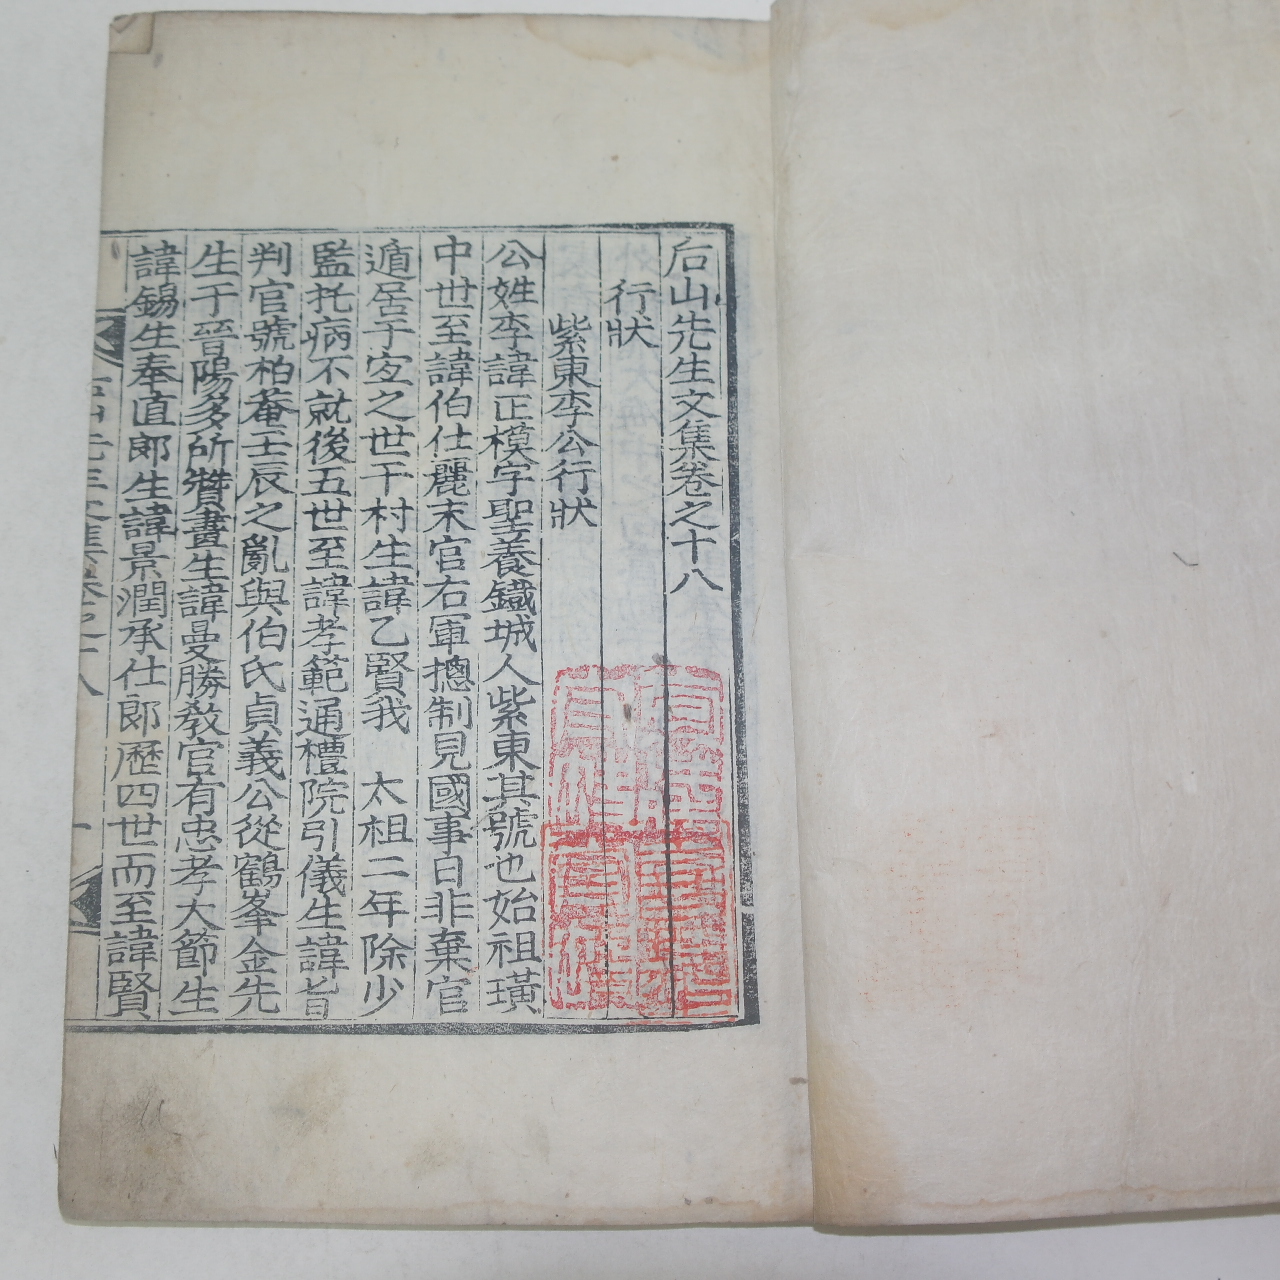 后山先生文集卷之十八
行狀
紫東李公行狀
公姓李諱正模字聖養鐵城人紫東其號也始祖璜
中世至諱伯仕麗末官右軍摠制見國事日非棄官
遁居于宜之世干村生諱乙賢我 太祖二年除少
監托病不就後五世至諱孝範通禮院引儀生諱旨
判官號柏菴壬辰之亂與伯氏貞義公從鶴峯金先
生于晉陽多所贊畫生諱曼勝敎官有忠孝大節生
諱錫生奉直郎生諱景潤承仕郎歷四世而至諱賢
后山先生文集卷之十八